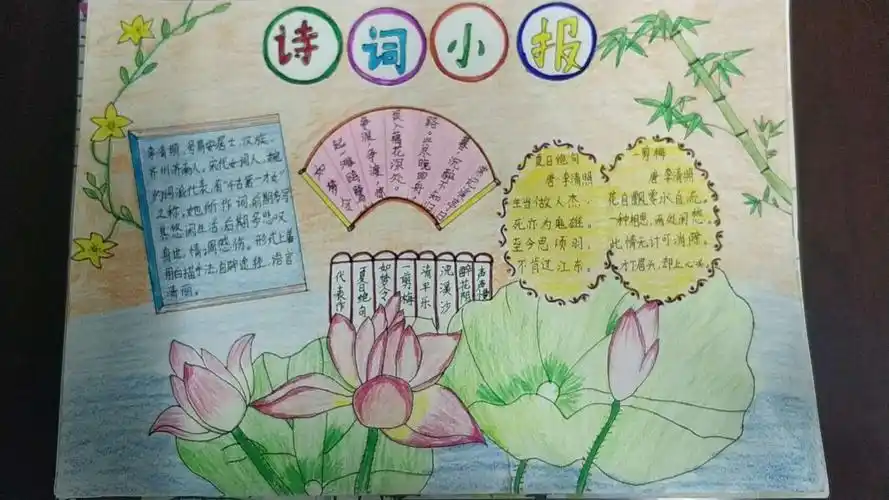 诗词小报
李清照，号易安居士，汉族，
齐州济南人。宋代女词人，婉
约词派代表，有“千古第一才女”
之称，她所作词，前期多写
其悠闲生活，后期多悲叹
身世，情调感伤。形式上善
用白描手法，自辟途径，语言
清丽。
如梦令
常记溪亭日
暮，沉醉不知归
路。兴尽晚回舟，
误入藕花深处。
争渡，争渡，惊
起一滩鸥鹭
代表作
夏日绝句
如梦令
一剪梅
清平乐
浣溪沙
醉花阴
声声慢
夏日绝句
唐 李清照
生当做人杰，
死亦为鬼雄。
至今思项羽，
不肯过江东。
一剪梅
唐 李清照
花自飘零水自流。
一种相思，两处闲愁。
此情无计可消除。
才下眉头，却上心头。